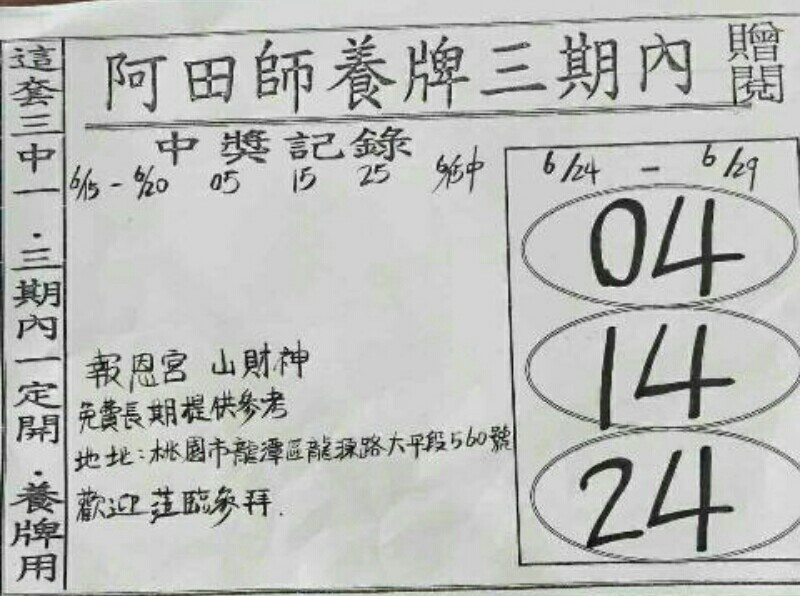 阿田師養牌三期內
贈閱
這套三中一．三期內一定開．養牌用
中獎記錄
6/15 - 6/20 05 15 25 6/15中
6/24 - 6/29
04
14
24
報恩宮 山財神
免費長期提供參考
地址：桃園市龍潭區龍源路大平段560號
歡迎蒞臨參拜.